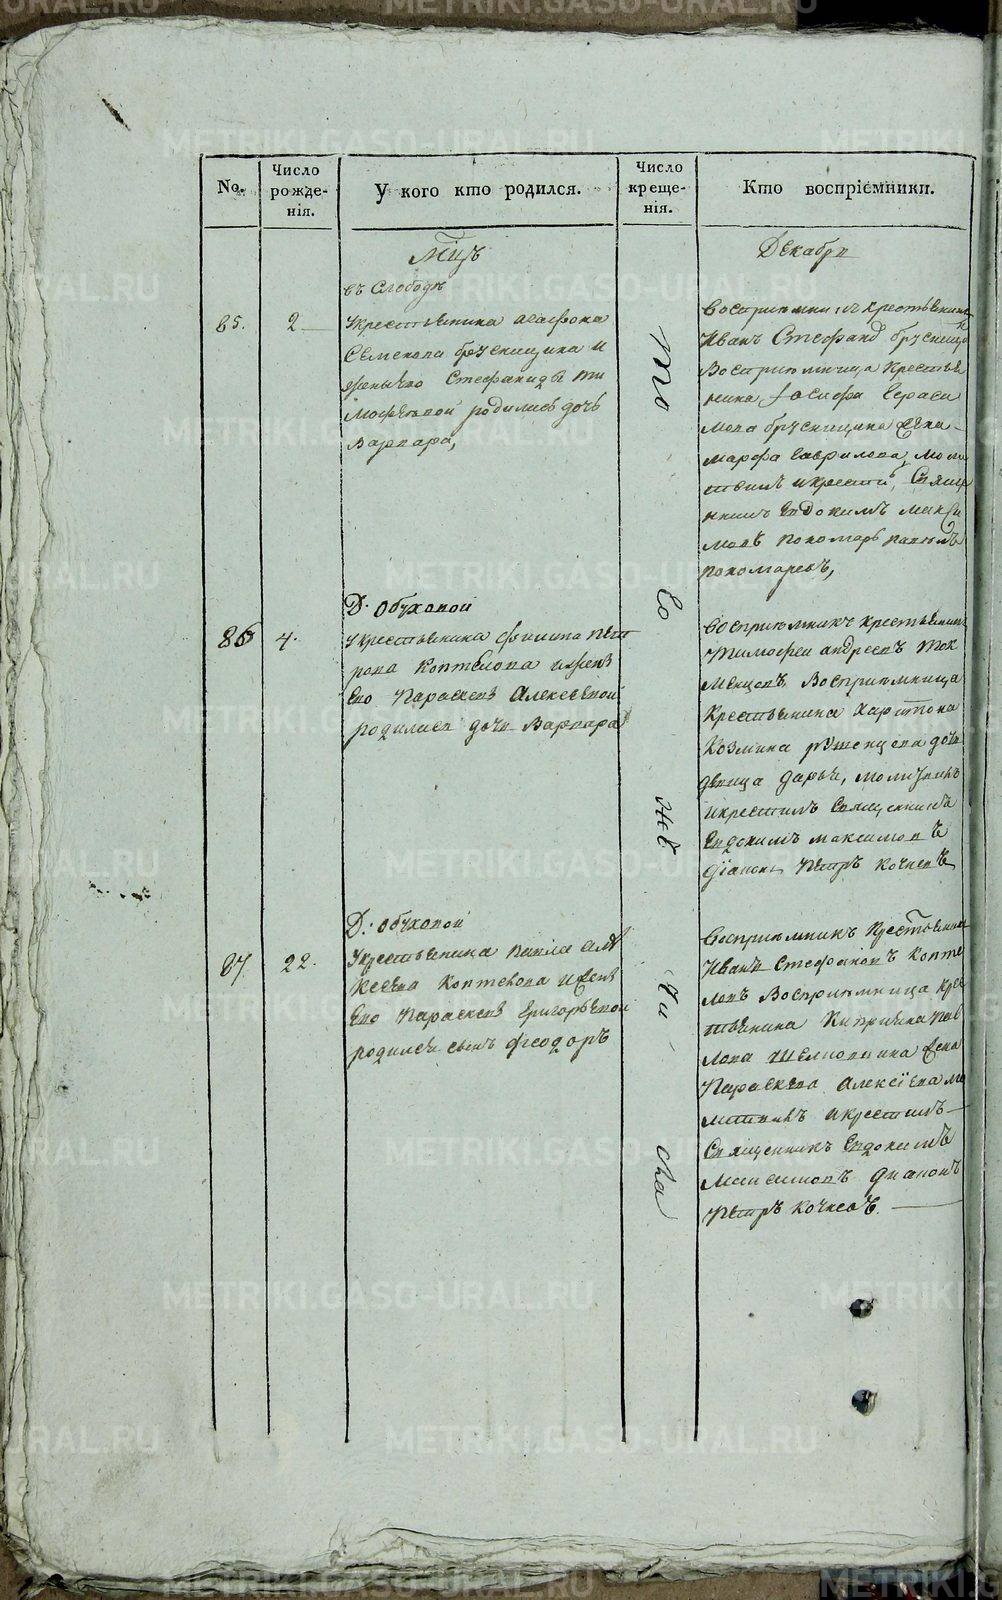 No.
Число рожде-
нія.
У кого кто родился.
Число креще-
нія.
Кто воспріемники.
Мцъ
Декабрь
въ Слободѣ
85.
2
Укрестьянина Агафона
Семенова брусницина и
жены его Стефаниды Ти
мофѣевой родилась дочь
Варвара,
Воспріемникъ крестьянинъ
Иванъ Стефановъ брусницы
Воспріемница крестья
нина Іосифа Гераси
мова брусницина жена
марфа Гаврилова, моли
твилъ икрестилъ Свяще
нникъ Евдокимъ макси
мовъ пономарь
пономаревъ,
Д. Обуховой
86
4.
Укрестьянина филипа пет
рова Коптелова ижены
Его Параскевы Алексѣевой
родилась дочь Варвара
Воспріемникъ крестьянинъ
Тимофеи андреевъ Ток
менцовъ Воспріемница
Крестьянина харитона
Козмина дочь
девица дарья, молитвилъ
икрестилъ Священникъ
Евдокимъ максимовъ
діаконъ Петръ Кочневъ
Д. Обуховой
87
22.
Укрестьянина павла Але
ксеева Коптелова ижены
Его Параскевы Григорьевой
родился сынъ феодоръ
Воспріемникъ крестьянинъ
Иванъ Стефановъ Копте
ловъ Воспріемница крес
тьянина Кипріяна Пав
лова жена
Параскева Алексіева мо
литвилъ икрестилъ
Священникъ Евдокимъ
Максимовъ Диаконъ
Петръ Кочневъ.
То
го
же
чи-
сла
METRIKI.GASO-URAL.RU